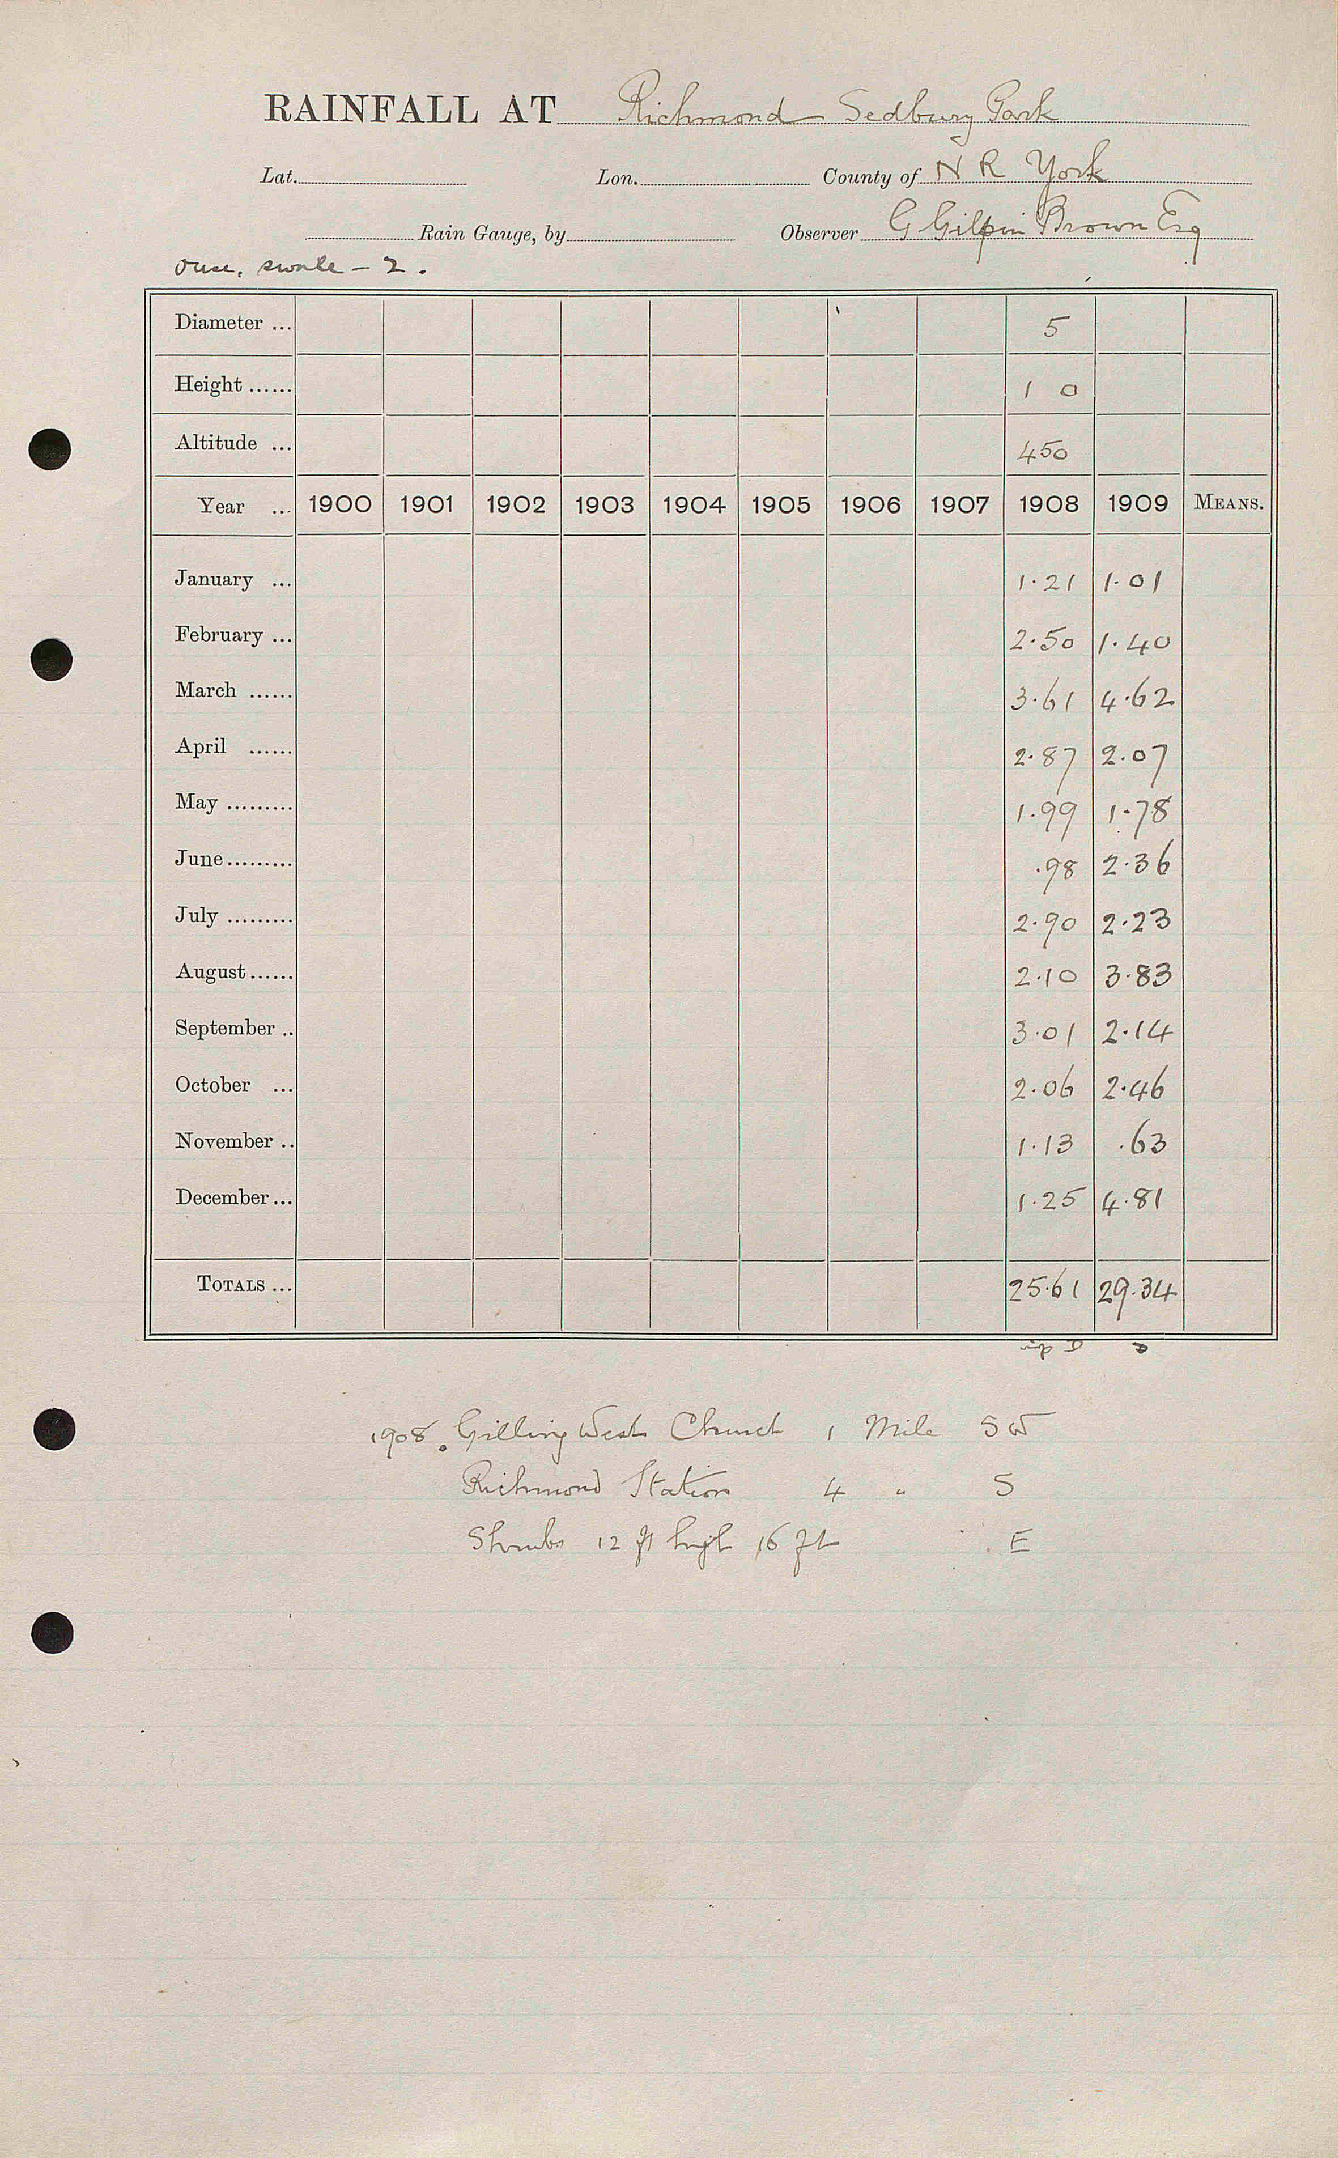 RAINFALL AT Richmond Sedbury Park
Lat. Lon. County of N R York
Rain Gauge, by Observer G Gilpin Brown Esq
Ouse, Swale - 2.
Diameter ... 5
Height ...... 1 0
Altitude ... 450
Year ... 1900 1901 1902 1903 1904 1905 1906 1907 1908 1909 MEANS.
January ... 1.21 1.01
February ... 2.50 1.40
March ...... 3.61 4.62
April ...... 2.87 2.07
May ......... 1.99 1.78
June ......... .98 2.36
July ......... 2.90 2.23
August ...... 2.10 3.83
September .. 3.01 2.14
October ... 2.06 2.46
November .. 1.13 .63
December ... 1.25 4.81
TOTALS ... 25.61 29.34
1908. Gilling West Church 1 Mile SW
Richmond Station 4 " S
Shrubs 12 ft high 16 ft E